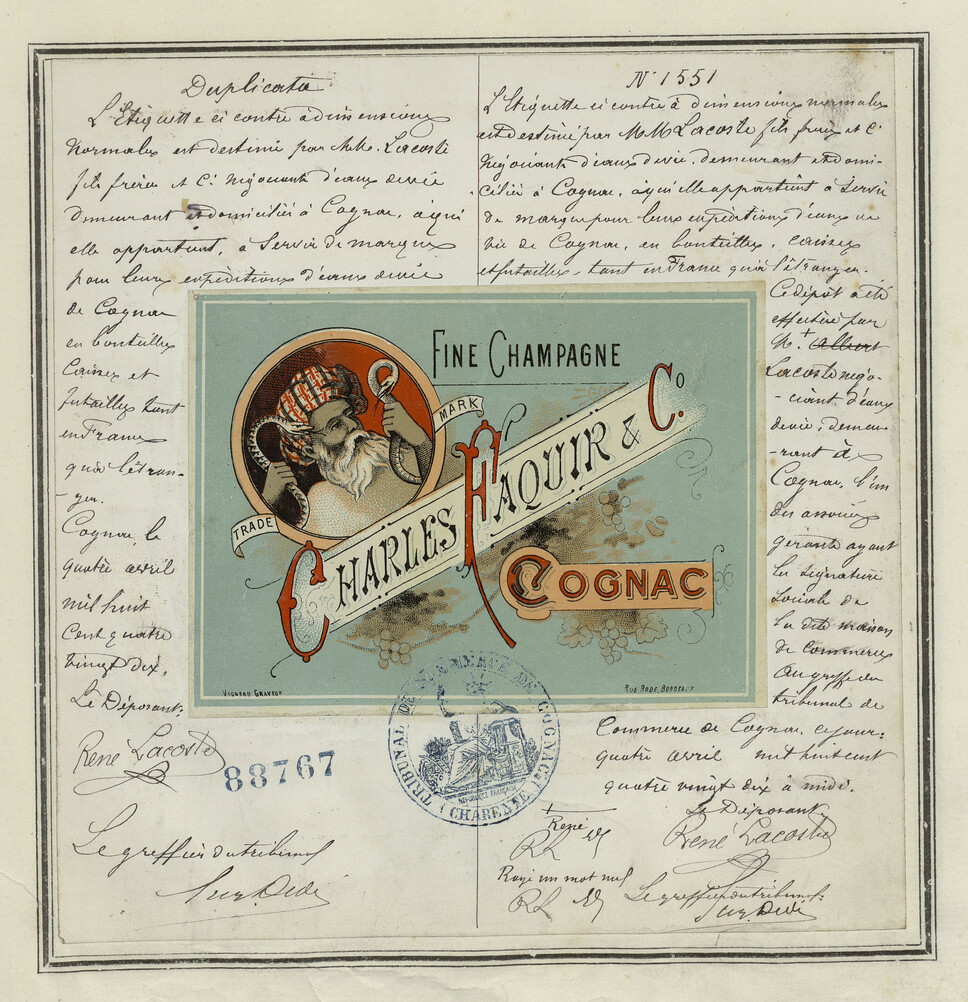 Duplicata
L'Etiquette ci contre à dimensions
Normales est destiné par M.M. Lacoste
fils frère et Cie Négociants d'eaux de vie
demeurant et domiciliés à Cognac, à qui
elle appartient, à Servir de marque
pour leurs expéditions d'eaux de vie
de Cognac
en bouteilles
Caisses et
futailles tant
en France
qu'à l'étran-
-ger.
Cognac, le
quatre avril
mil huit
Cent quatre
vingt dix.
Le Déposant,
René Lacoste
88767
Le greffier du tribunal
N° 1551
L'Etiquette ci contre à dimensions normales
est destiné par M.M. Lacoste fils frère et Cie
Négociants d'eaux de vie, demeurant et domi-
-ciliés à Cognac, à qui elle appartient à Servir
de marque pour leurs expéditions d'eaux de
vie de Cognac, en bouteilles, caisses
et futailles, tant en France qu'à l'étranger.
Ce dépôt a été
effectué par
M. + Albert
Lacoste négo-
-ciant d'eaux
de vie, demeu-
-rant à
Cognac, l'un
des associés
gérants ayant
la signature
sociale de
la dite maison
de commerce
au greffe du
tribunal de
Commerce de Cognac, ce jour:
quatre avril mil huit cent
quatre vingt dix à midi.
Le Déposant,
René Lacoste
+ René
RL
Rayé un mot nul
RL
Le greffier du tribunal:
FINE CHAMPAGNE
TRADE
MARK
CHARLES FAQUIR & Co.
COGNAC
VIGNEAU GRAVEUR
RUE RODE, BORDEAUX
TRIBUNAL DE COMMERCE DE COGNAC
(CHARENTE)
RÉPUBLIQUE FRANÇAISE